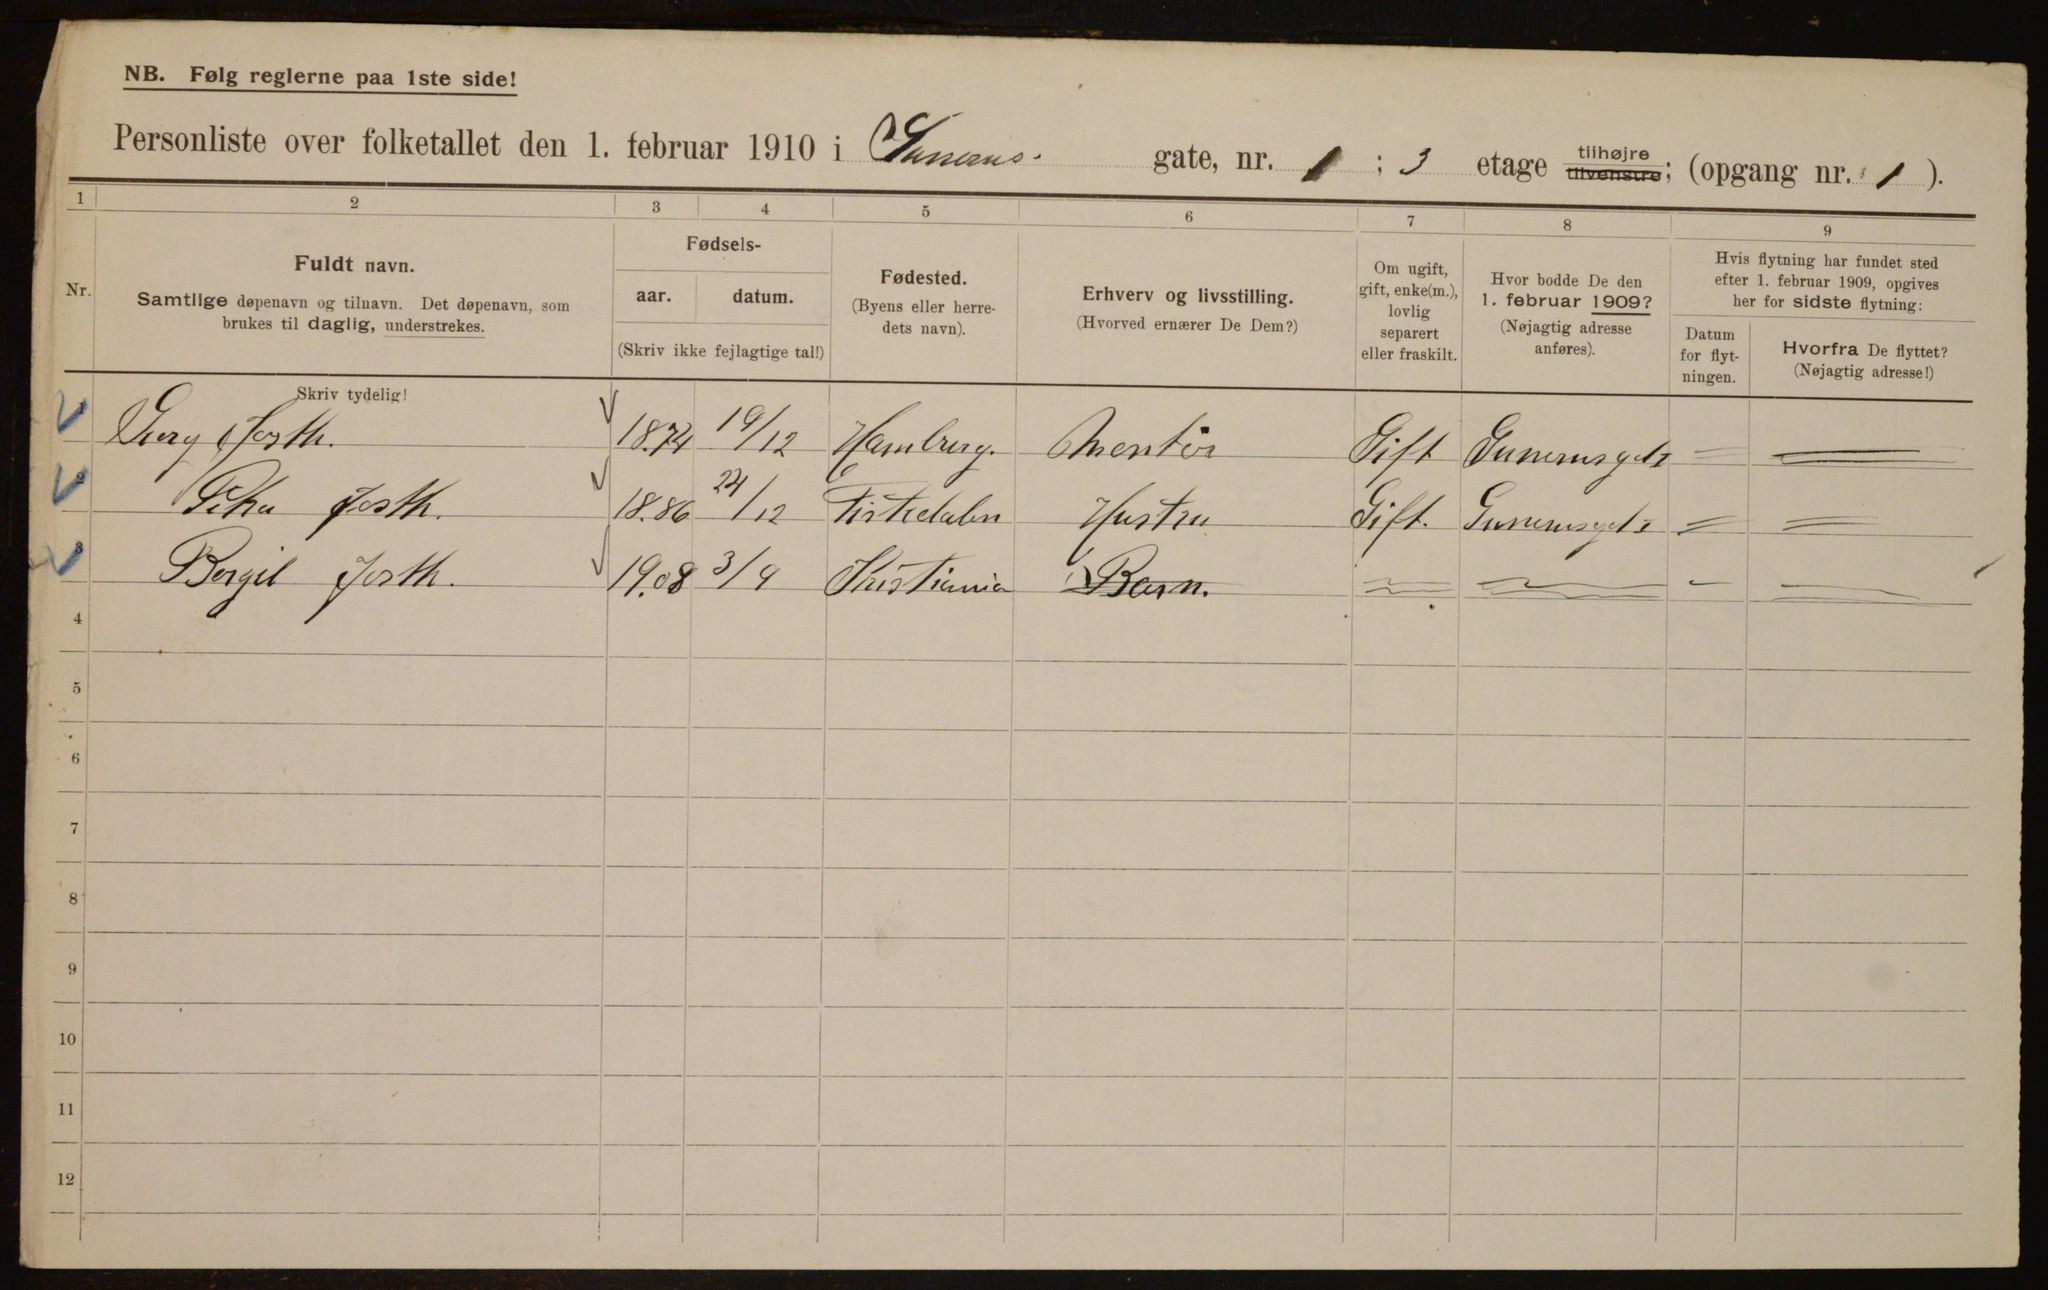 NB. Følg reglerne paa 1ste side!
Personliste over folketallet den 1. februar 1910 i Gunerus. gate, nr. 1 ; 3 etage tilhøjre tilvenstre; (opgang nr. 1 ).
1 2 3 4 5 6 7 8 9
Nr.
Fuldt navn.
Samtlige døpenavn og tilnavn. Det døpenavn, som
brukes til daglig, understrekes.
Skriv tydelig!
Fødsels-
aar. datum.
(Skriv ikke fejlagtige tal!)
Fødested.
(Byens eller herre-
dets navn).
Erhverv og livsstilling.
(Hvorved ernærer De Dem?)
Om ugift,
gift, enke(m.),
lovlig
separert
eller fraskilt.
Hvor bodde De den
1. februar 1909?
(Nøjagtig adresse
anføres).
Hvis flytning har fundet sted
efter 1. februar 1909, opgives
her for sidste flytning:
Datum
for flyt-
ningen.
Hvorfra De flyttet?
(Nøjagtig adresse!)
1 Josth. 18.74 19/12 Hamburg. Montør Gift Gunerusgt 1 =
2 Josth. 18.86 24/12 Tistedalen Hustru Gift. Gunerusgt 1 = =
3 Borgil Josth. 19.08 3/9 Kristiania Barn. -
4
5
6
7
8
9
10
11
12